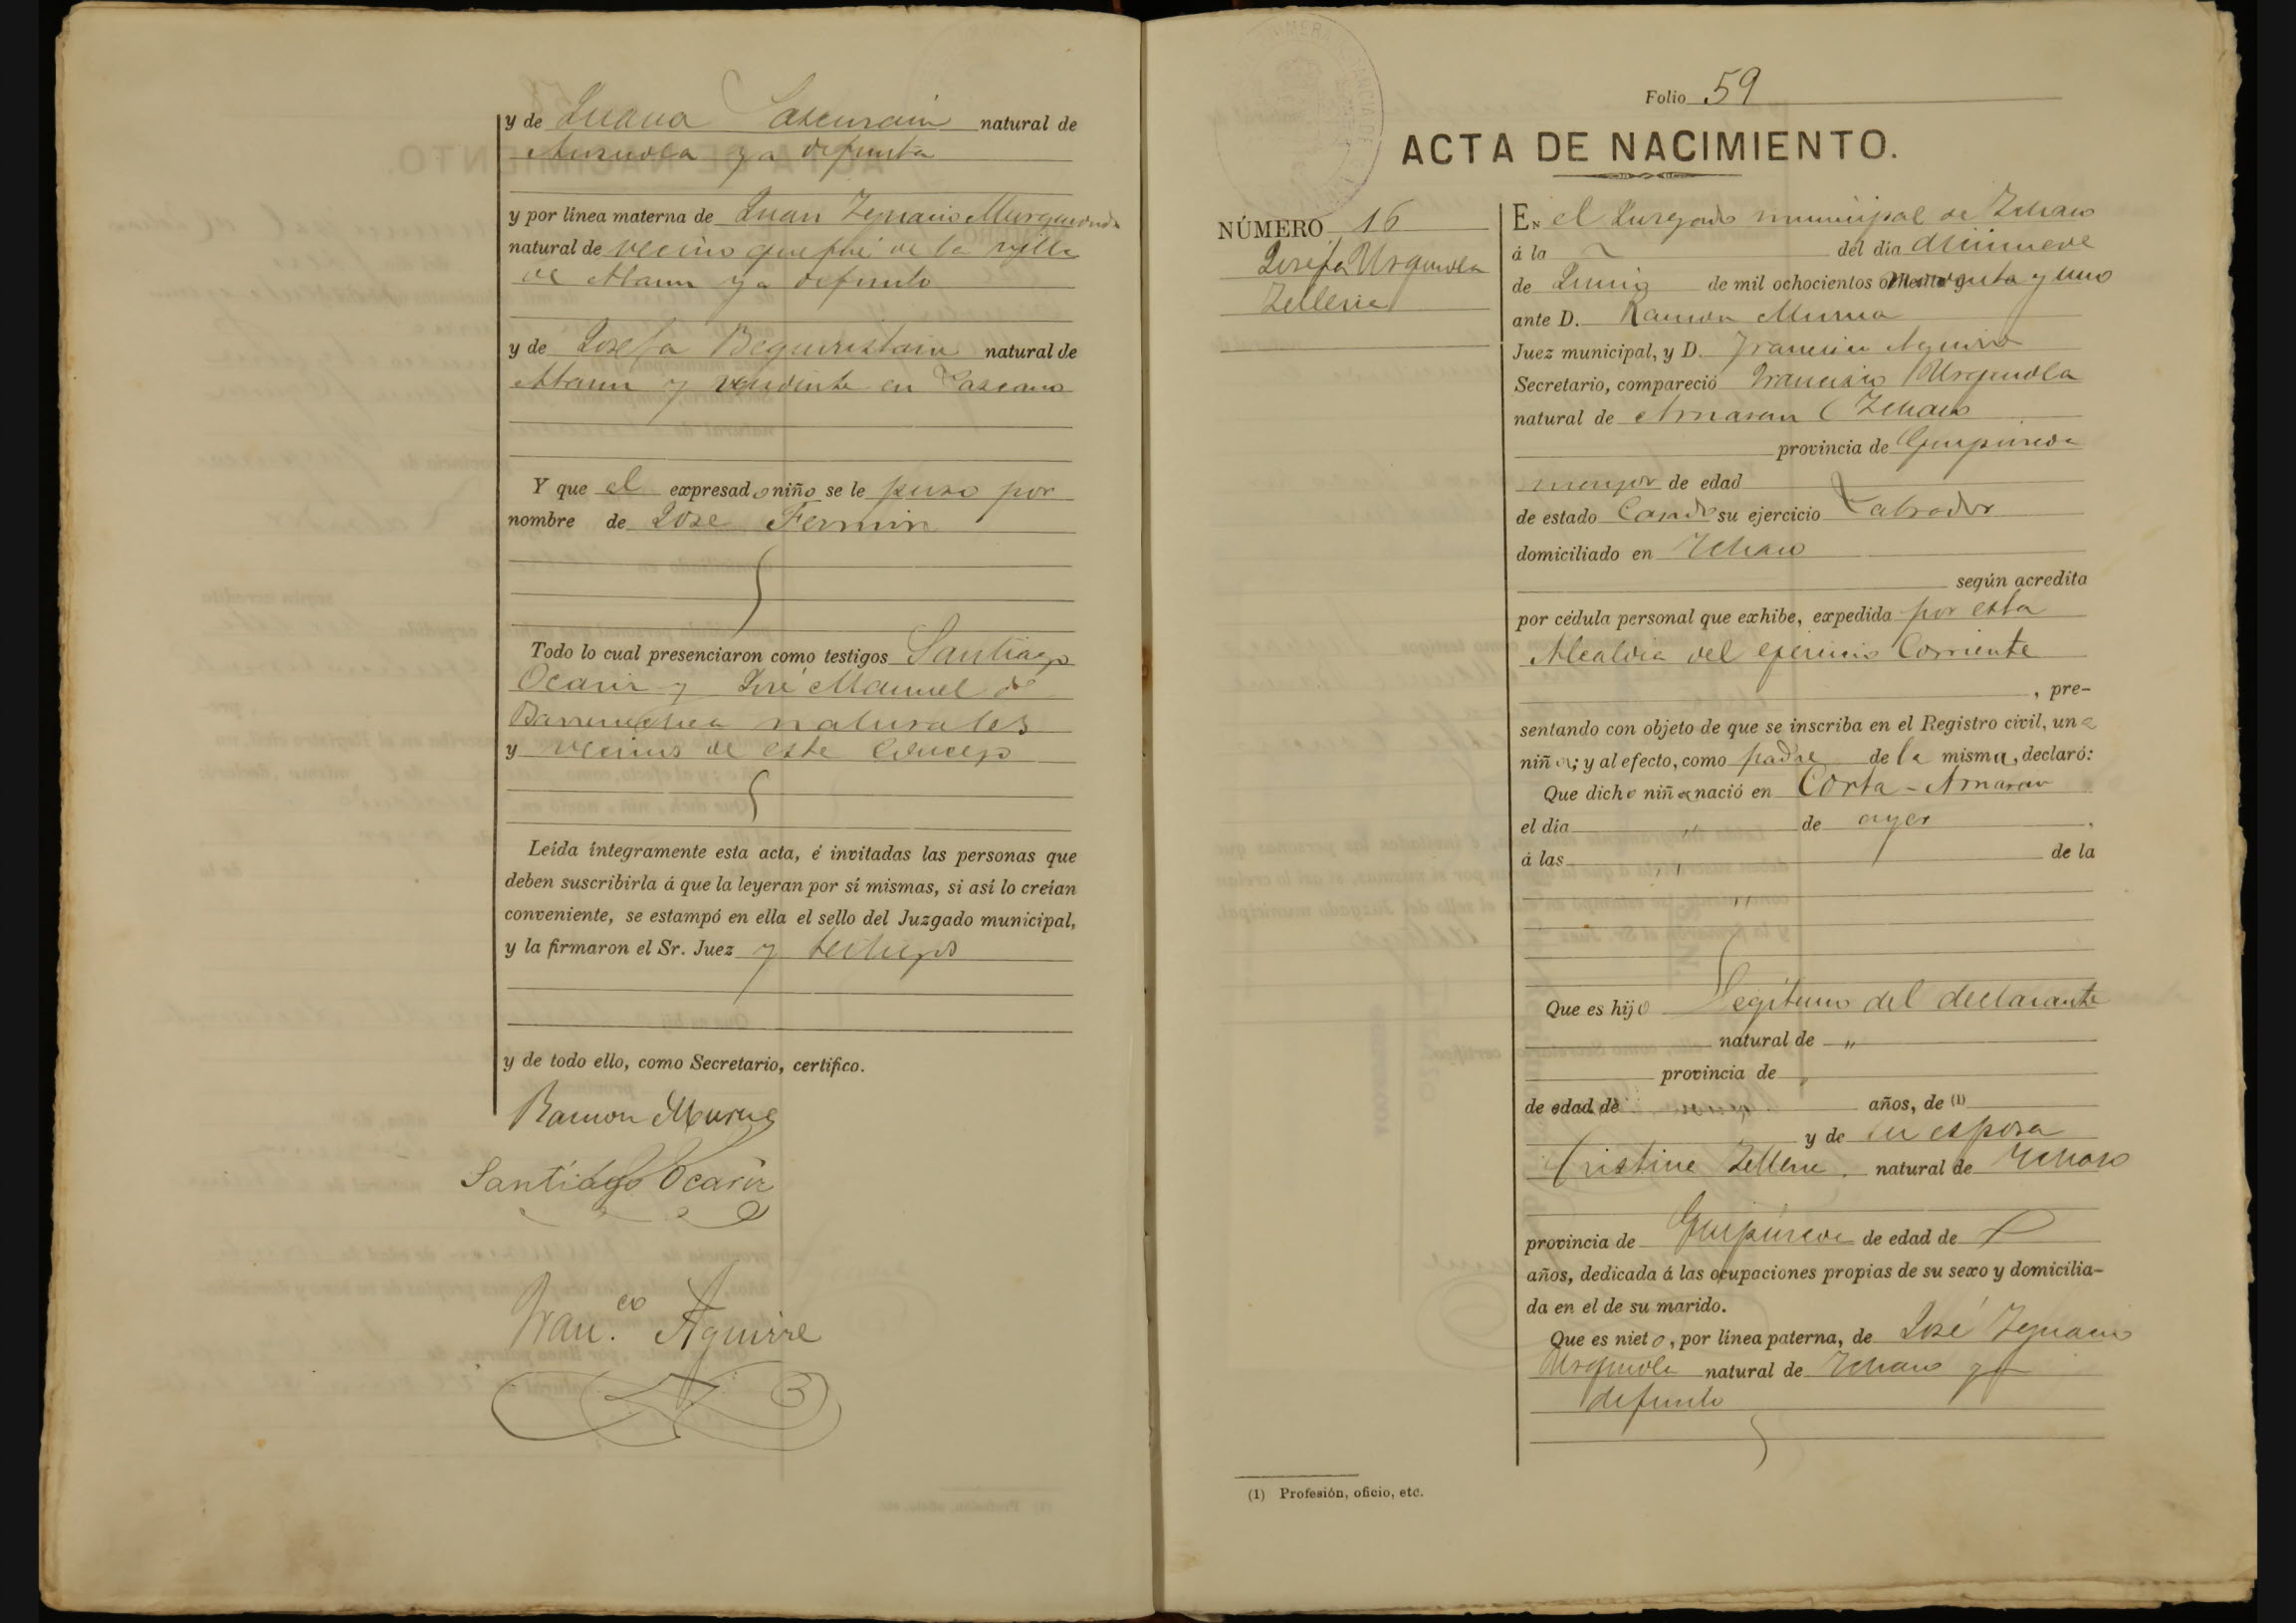 y de Juana Lascurain natural de
Anzuola ya defunta
y por línea materna de Juan Ignacio Murguiondo
natural de vecino que fué de la villa
de Ataun ya defunto
y de Josefa Beguiristain natural de
Ataun y residente en Lazcano
Y que el expresado niño se le puso por
nombre de Jose Fermin
Todo lo cual presenciaron como testigos Santiago
Ocariz y José Manuel de
Barrenechea naturales
y vecinos de este Concejo
Leída íntegramente esta acta, é invitadas las personas que
deben suscribirla á que la leyeran por sí mismas, si así lo creían
conveniente, se estampó en ella el sello del Juzgado municipal,
y la firmaron el Sr. Juez y testigos
y de todo ello, como Secretario, certifico.
Ramon Murua
Santiago Ocariz
Fran.co Aguirre
Folio 59
ACTA DE NACIMIENTO.
NÚMERO 16
Josefa Urquiola
Telleria
En el Juzgado municipal de Ichaso
á la del día diecinueve
de Junio de mil ochocientos noventa y uno
ante D. Ramon Murua
Juez municipal, y D. Francisco Aguirre
Secretario, compareció Francisco Urquiola
natural de Arriaran Ichaso
provincia de Guipúzcoa
mayor de edad
de estado Casado su ejercicio Labrador
domiciliado en Ichaso
según acredita
por cédula personal que exhibe, expedida por esta
Alcaldia del ejercicio Corriente
, pre-
sentando con objeto de que se inscriba en el Registro civil, una
niña; y al efecto, como padre de la misma, declaró:
Que dicho niña nació en Corta - Arriaran
el día " de ayer ,
á las " de la
"
Que es hijo Legitimo del declarante
natural de "
provincia de "
de edad de años, de (1)
y de su esposa
Cristina Telleria natural de Ichaso
provincia de Guipúzcoa de edad de
años, dedicada á las ocupaciones propias de su sexo y domicilia-
da en el de su marido.
Que es nieto, por línea paterna, de José Ignacio
Urquiola natural de Ichaso ya
defunto
(1) Profesión, oficio, etc.